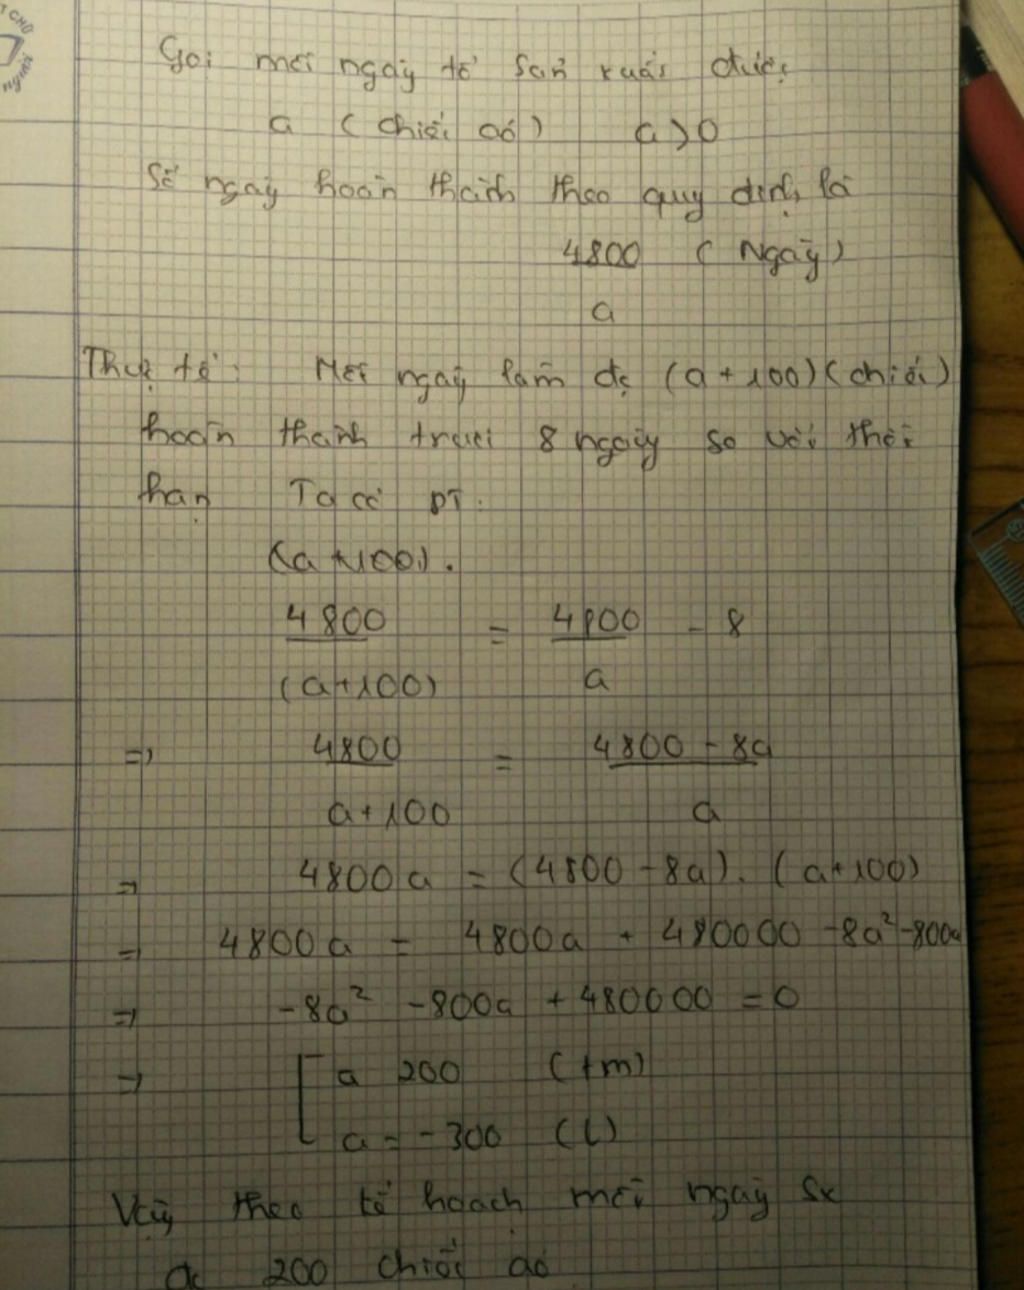 T CHO
người
Gọi mỗi ngày tổ sản xuất được
a (chiếc áo) a > 0
Số ngày hoàn thành theo quy định là
4800 (Ngày)
a
Thực tế: Mỗi ngày làm đc (a + 100) (chiếc)
hoàn thành trước 8 ngày so với thời
hạn Ta có PT.
(a + 100).
4800 = 4800 - 8
(a + 100) a
=> 4800 = 4800 - 8a
a + 100 a
=> 4800a = (4800 - 8a). (a + 100)
=> 4800a = 4800a + 480000 - 8a² - 800a
=> -8a² - 800a + 480000 = 0
=> [ a 200 (tm)
a = -300 (L)
Vậy theo kế hoạch mỗi ngày sx
đc 200 chiếc áo